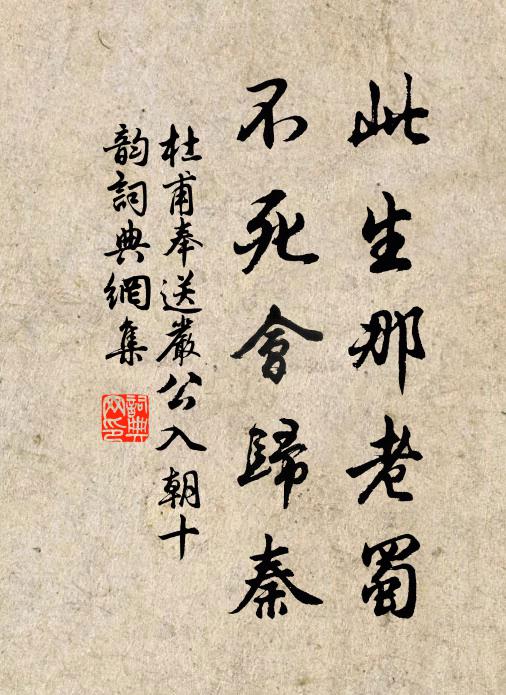 此生那老蜀
不死會歸秦
杜甫奉送嚴公入朝十
韵詞典網集
詞典网印